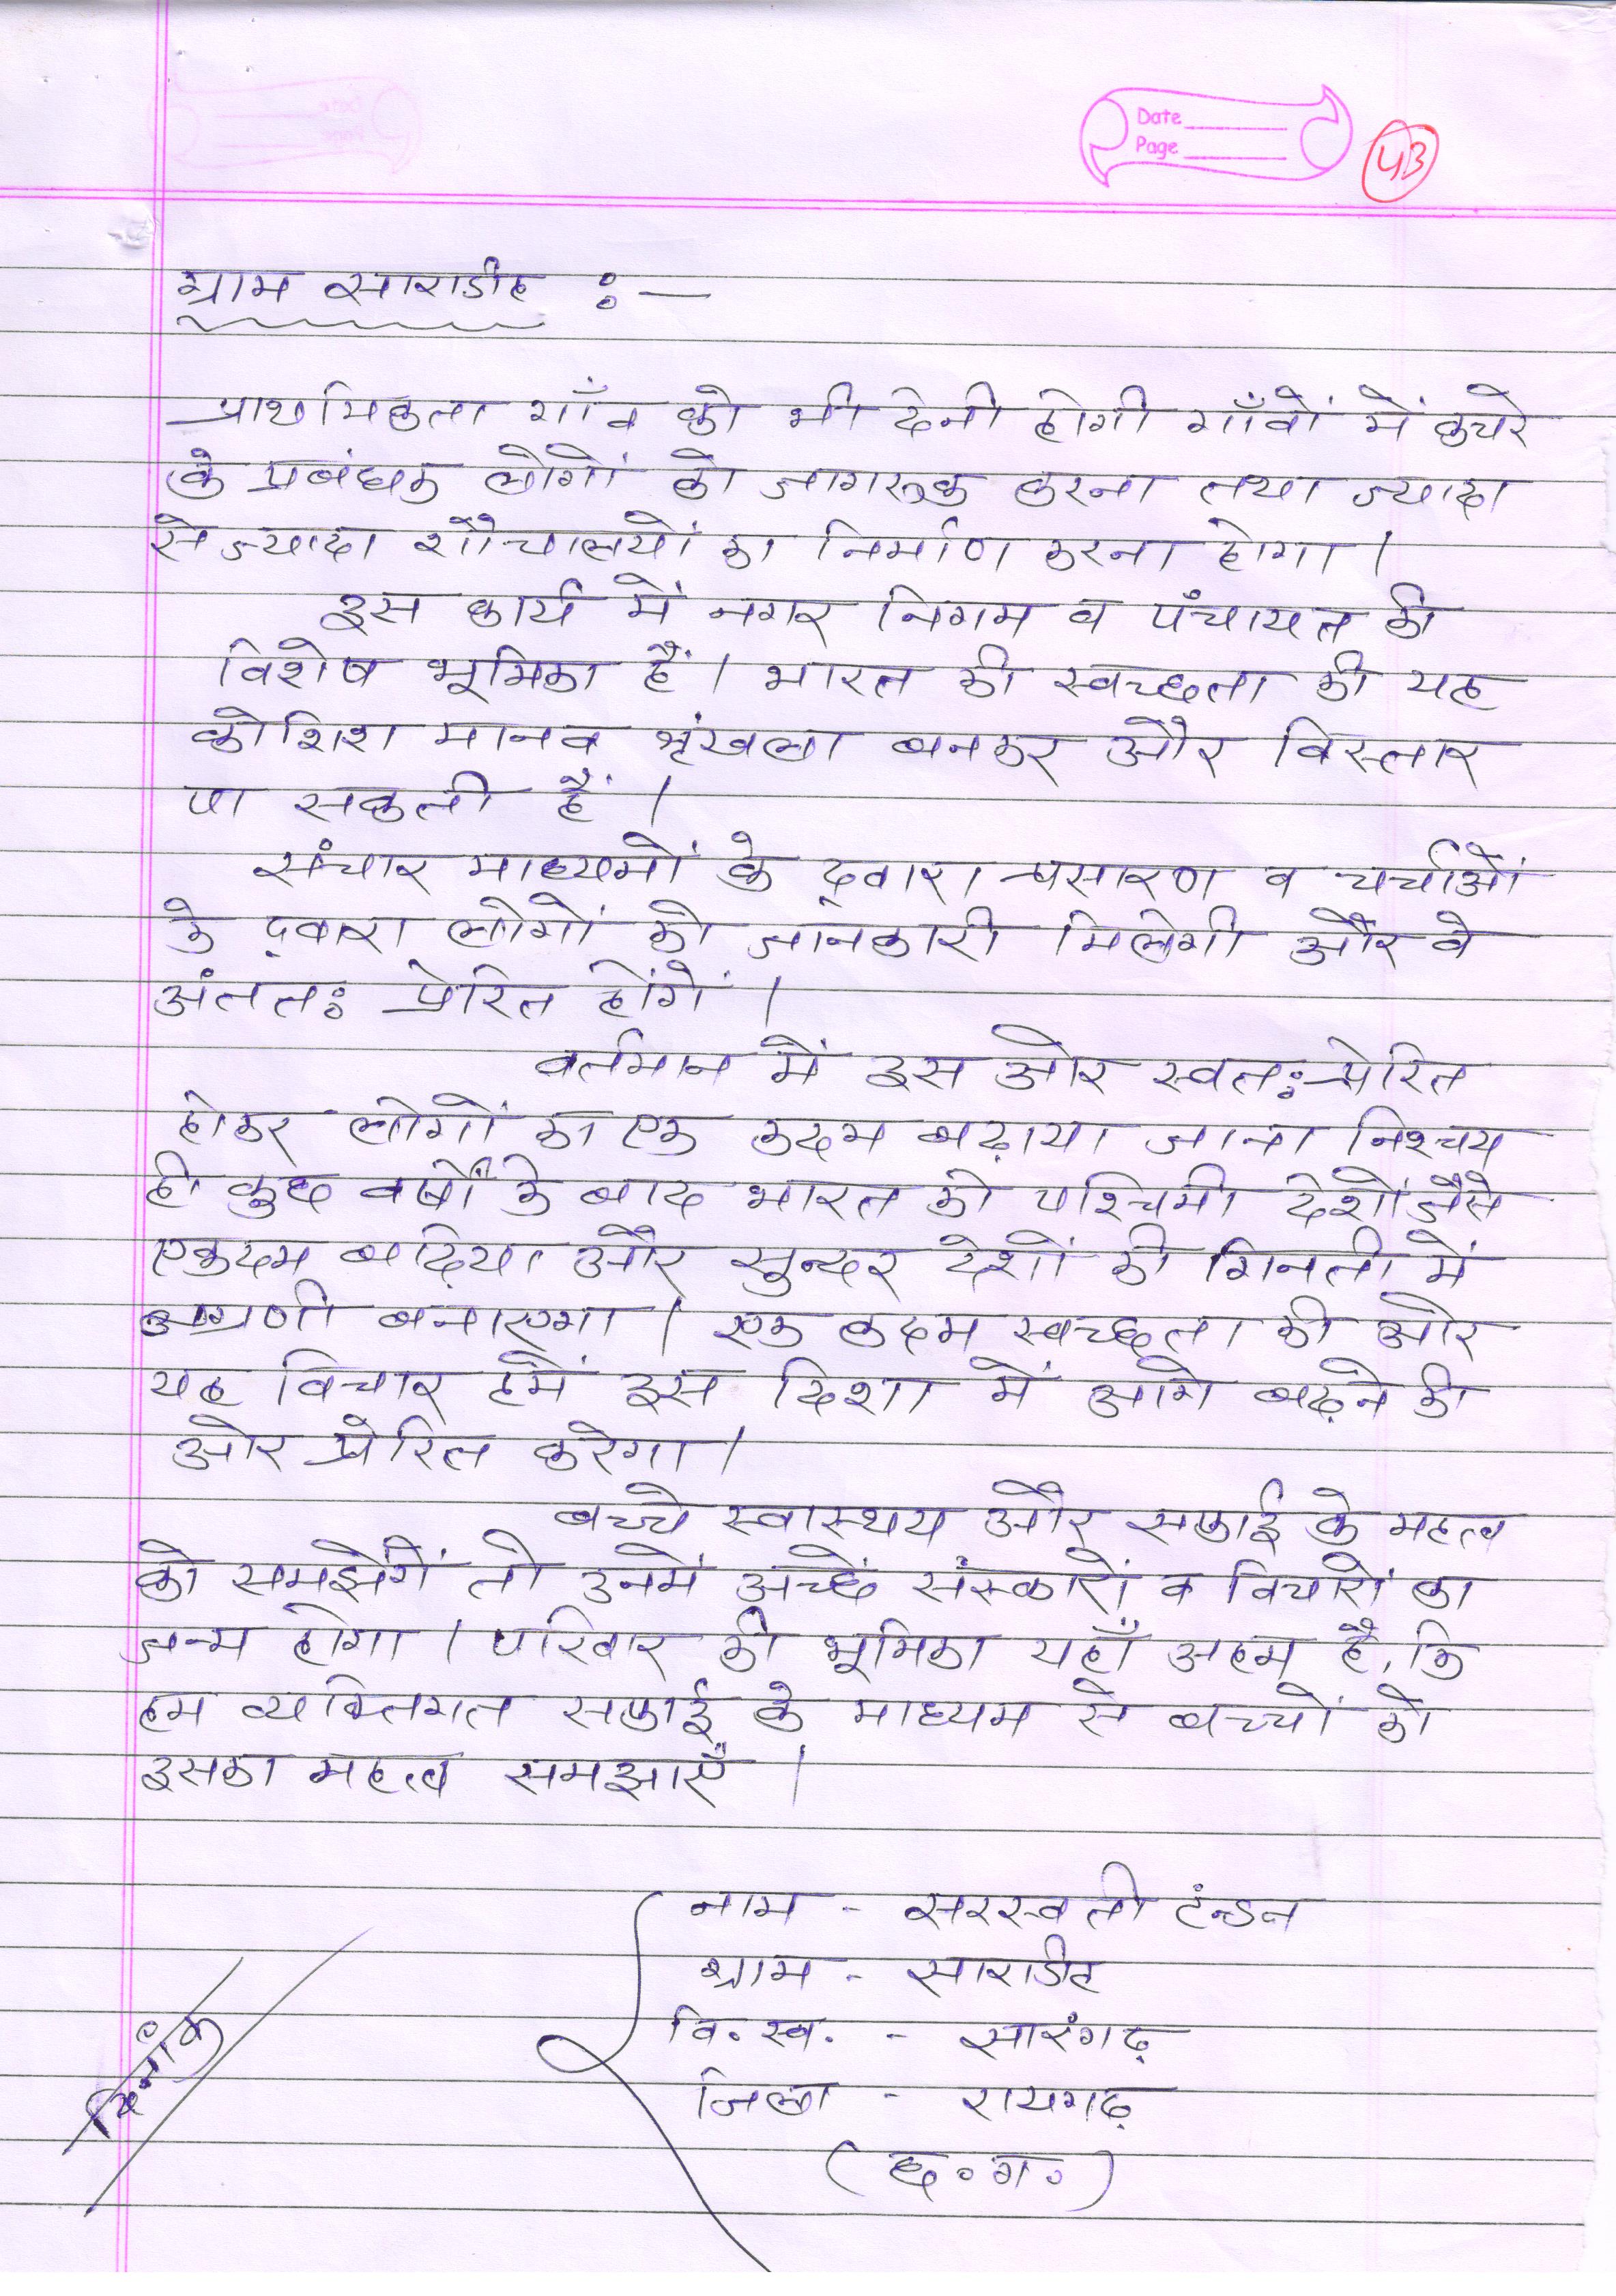 Date
Page
43
ग्राम साराडीह :-
प्राथमिकता गाँव को भी देनी होगी गाँवों में कचरे
के प्रबंधक लोगों को जागरूक करना तथा ज्यादा
से ज्यादा शौचालयों का निर्माण करना होगा।
इस कार्य में नगर निगम व पंचायत की
विशेष भूमिका हैं। भारत की स्वच्छता की यह
कोशिश मानव श्रृंखला बनकर और विस्तार
पा सकती हैं।
संचार माध्यमों के द्वारा प्रसारण व चर्चाओं
के द्वारा लोगों को जानकारी मिलेगी और वे
अंततः प्रेरित होंगें।
वर्तमान में इस ओर स्वतः प्रेरित
होकर लोगों का एक कदम बढ़ाया जाना निश्चय
ही कुछ वर्षों के बाद भारत को पश्चिमी देशों जैसे
एकदम बढ़िया और सुन्दर देशों की गिनती में
अग्रणी बनाएगा। एक कदम स्वच्छता की ओर
यह विचार हमें इस दिशा में आगे बढ़ने की
ओर प्रेरित करेगा।
बच्चे स्वास्थय और सफाई के महत्व
को समझेंगें तो उनमें अच्छें संस्कारों व विचारों का
जन्म होगा। परिवार की भूमिका यहाँ अहम् है, कि
हम व्यक्तिगत सफाई के माध्यम से बच्चों को
इसका महत्व समझाएँ।
नाम - सरस्वती टंन्डन
ग्राम - साराडीह
वि.ख. - सारंगढ़
जिला - रायगढ़
(छ.ग.)
दिनांक